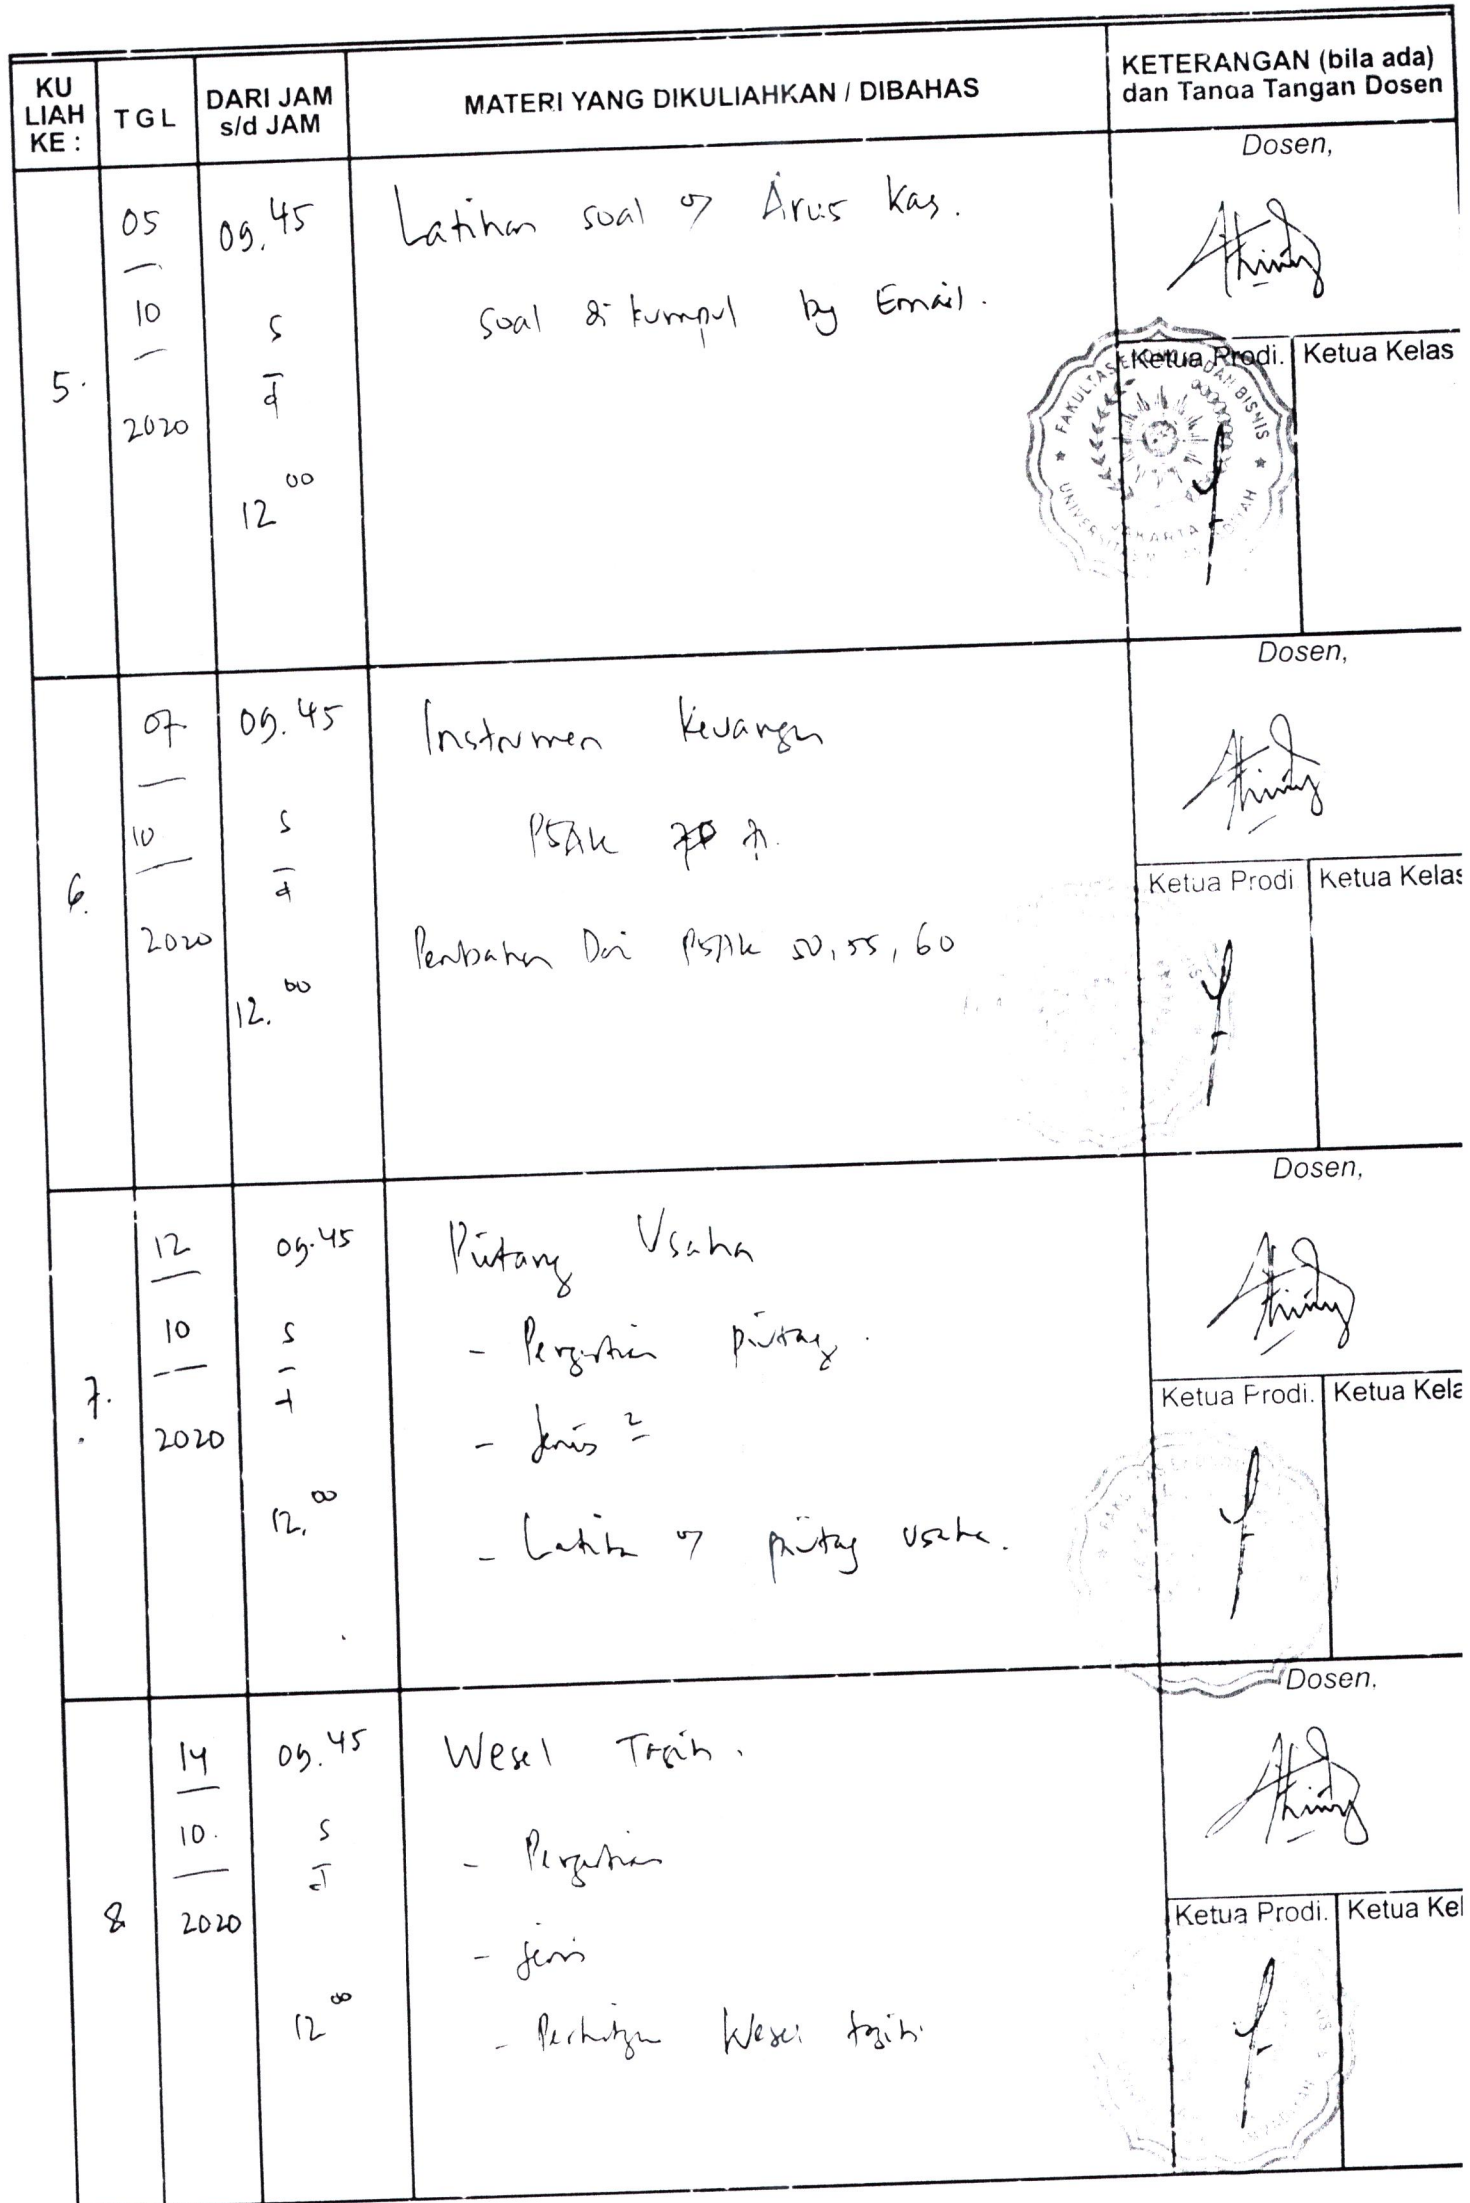 KU LIAH KE :
T G L
DARI JAM s/d JAM
MATERI YANG DIKULIAHKAN / DIBAHAS
KETERANGAN (bila ada) dan Tanda Tangan Dosen
5.
05
10
2020
09.45
s
d
12 00
Latihan soal Arus Kas.
Soal di kumpul by Email.
Dosen,
Ketua Prodi.
Ketua Kelas
FAKULTAS EKONOMI DAN BISNIS
UNIVERSITAS
JAKARTA
6.
07
10
2020
09.45
s
d
12. 00
Instrumen Keuangan
PSAK 71.
Perubahan Dari PSAK 50, 55, 60
Dosen,
Ketua Prodi
Ketua Kelas
7.
12
10
2020
09.45
s
d
12. 00
Piutang Usaha
- Pengertian piutang.
- Jenis 2
- Latihan piutang usaha.
Dosen,
Ketua Prodi.
Ketua Kela
8
14
10.
2020
09.45
s
d
12 00
Wesel Tagih.
- Pengertian
- Jenis
- Perhitungan Wesel tagih.
Dosen.
Ketua Prodi.
Ketua Kel